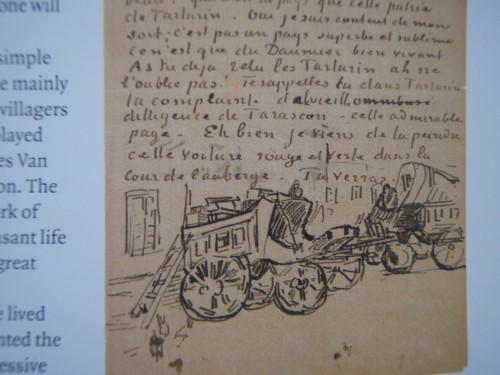 one will
simple
e mainly
villagers
played
es Van
on. The
rk of
sant life
great
e lived
nted the
essive
pays que cette patrie
de Tartarin. Oui je suis content de mon
sort, c'est pas un pays superbe et sublime
ce n'est que du Daumier bien vivant.
As tu deja relu les Tartarin ah ne
l'oublie pas! Te rappelles tu dans Tartarin
la complainte de la vieille
diligence de Tarascon – cette admirable
page – Eh bien je viens de la peindre
cette voiture rouge et verte dans la
cour de l'auberge – Tu verras